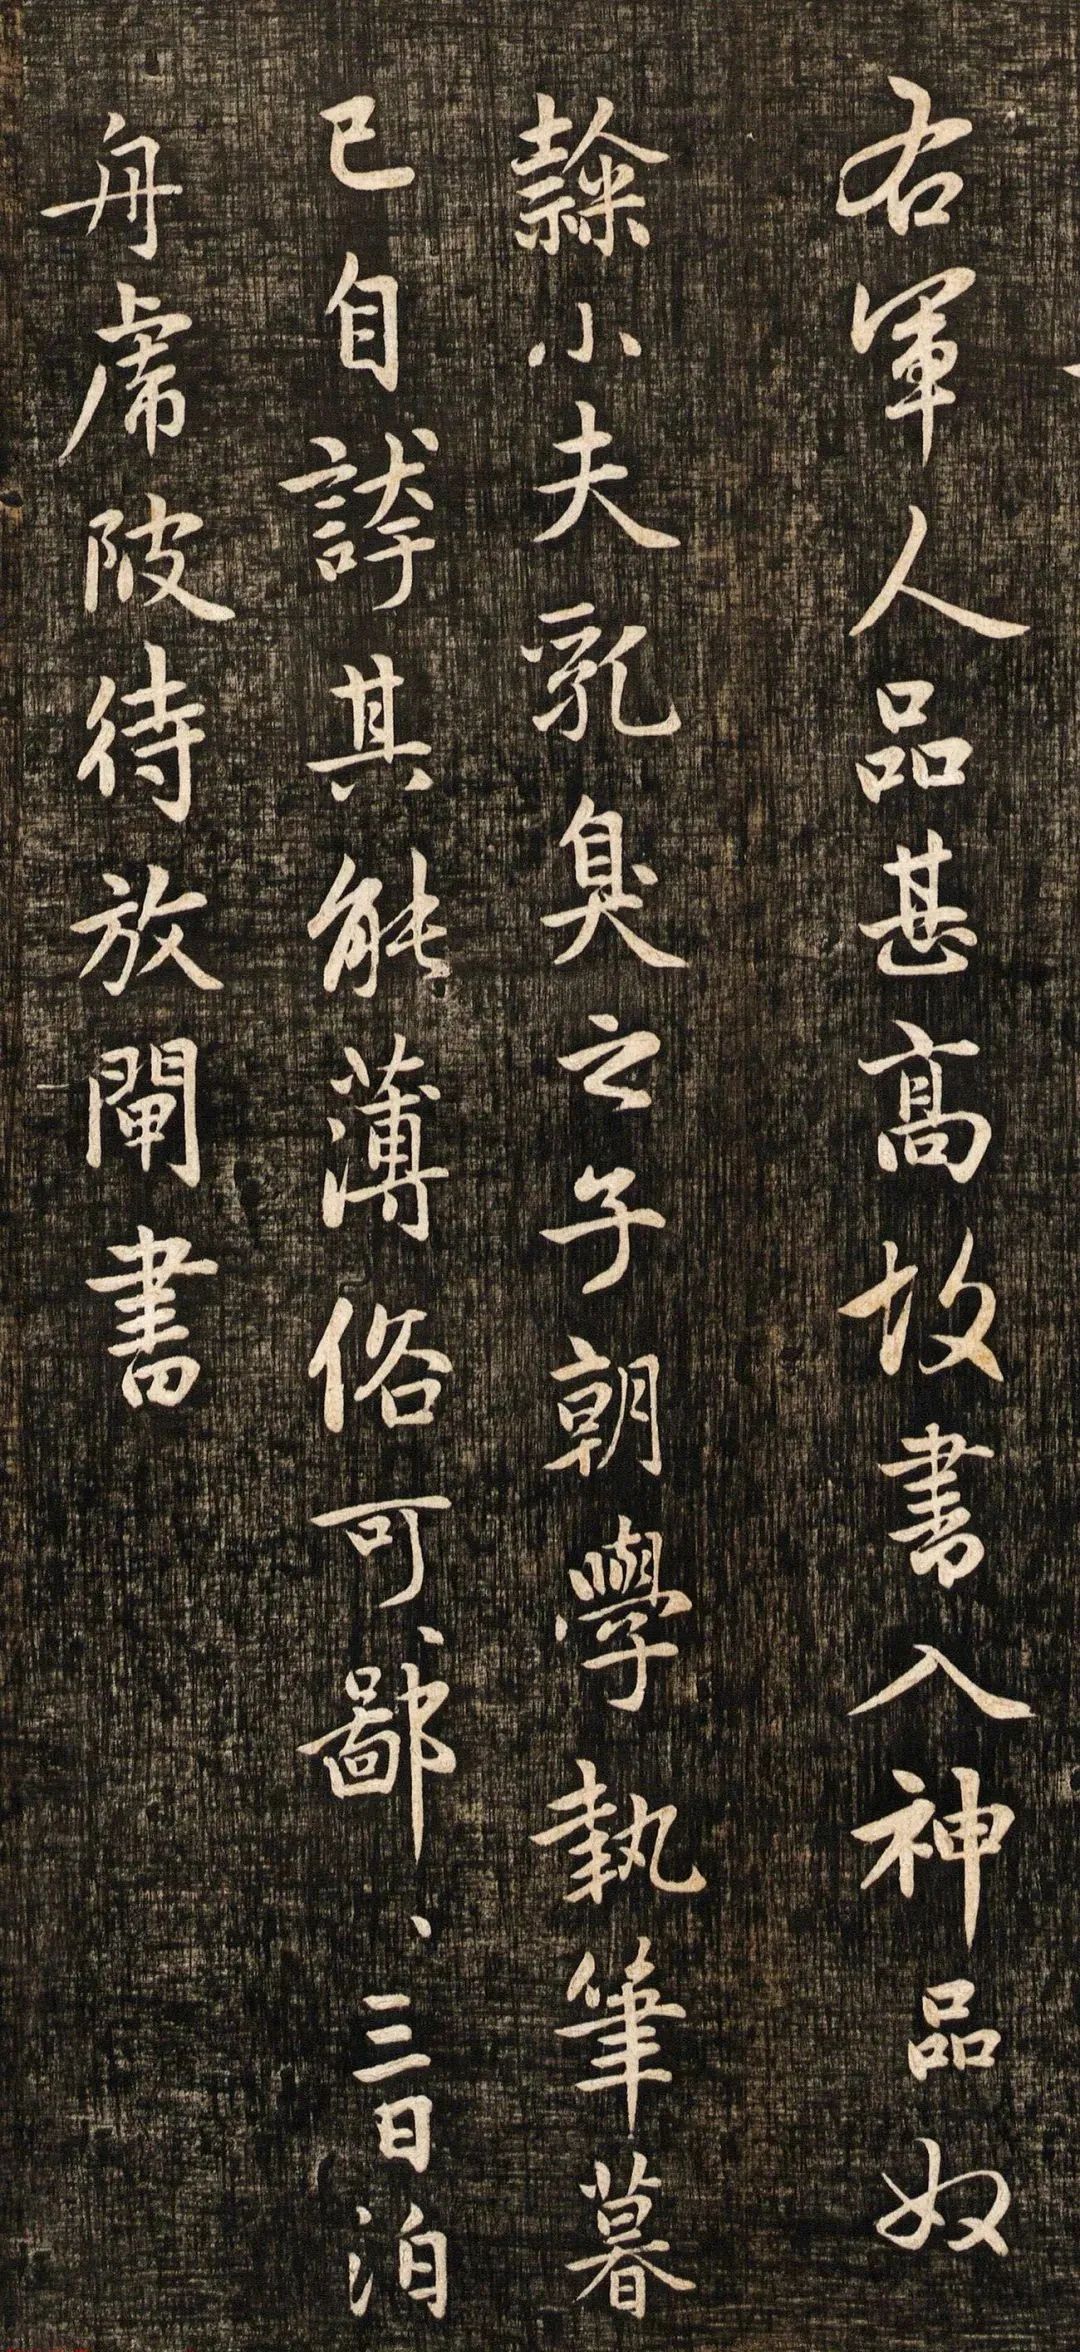 右軍人品甚高故書入神品奴
隸小夫乳臭之子朝學執筆暮
已自誇其能薄俗可鄙可鄙三日泊
舟虎陂待放閘書